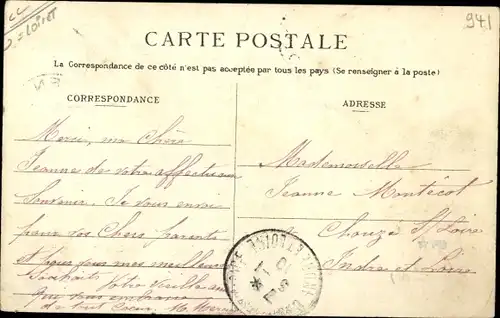 = Loiret
941
CARTE POSTALE
La Correspondance de ce côté n'est pas acceptée par tous les pays (Se renseigner à la poste)
CORRESPONDANCE
ADRESSE
Merci, ma Chère
Jeanne de votre affectueux
Souvenir. Je vous envoi
pour vos Chers parents
et vous mes meilleurs
Souhaits Votre vieille amie
que vous embrasse
de tout Coeur,
Mademoiselle
Jeanne Montécot
Chouzé S/ Loire
Indre et Loire